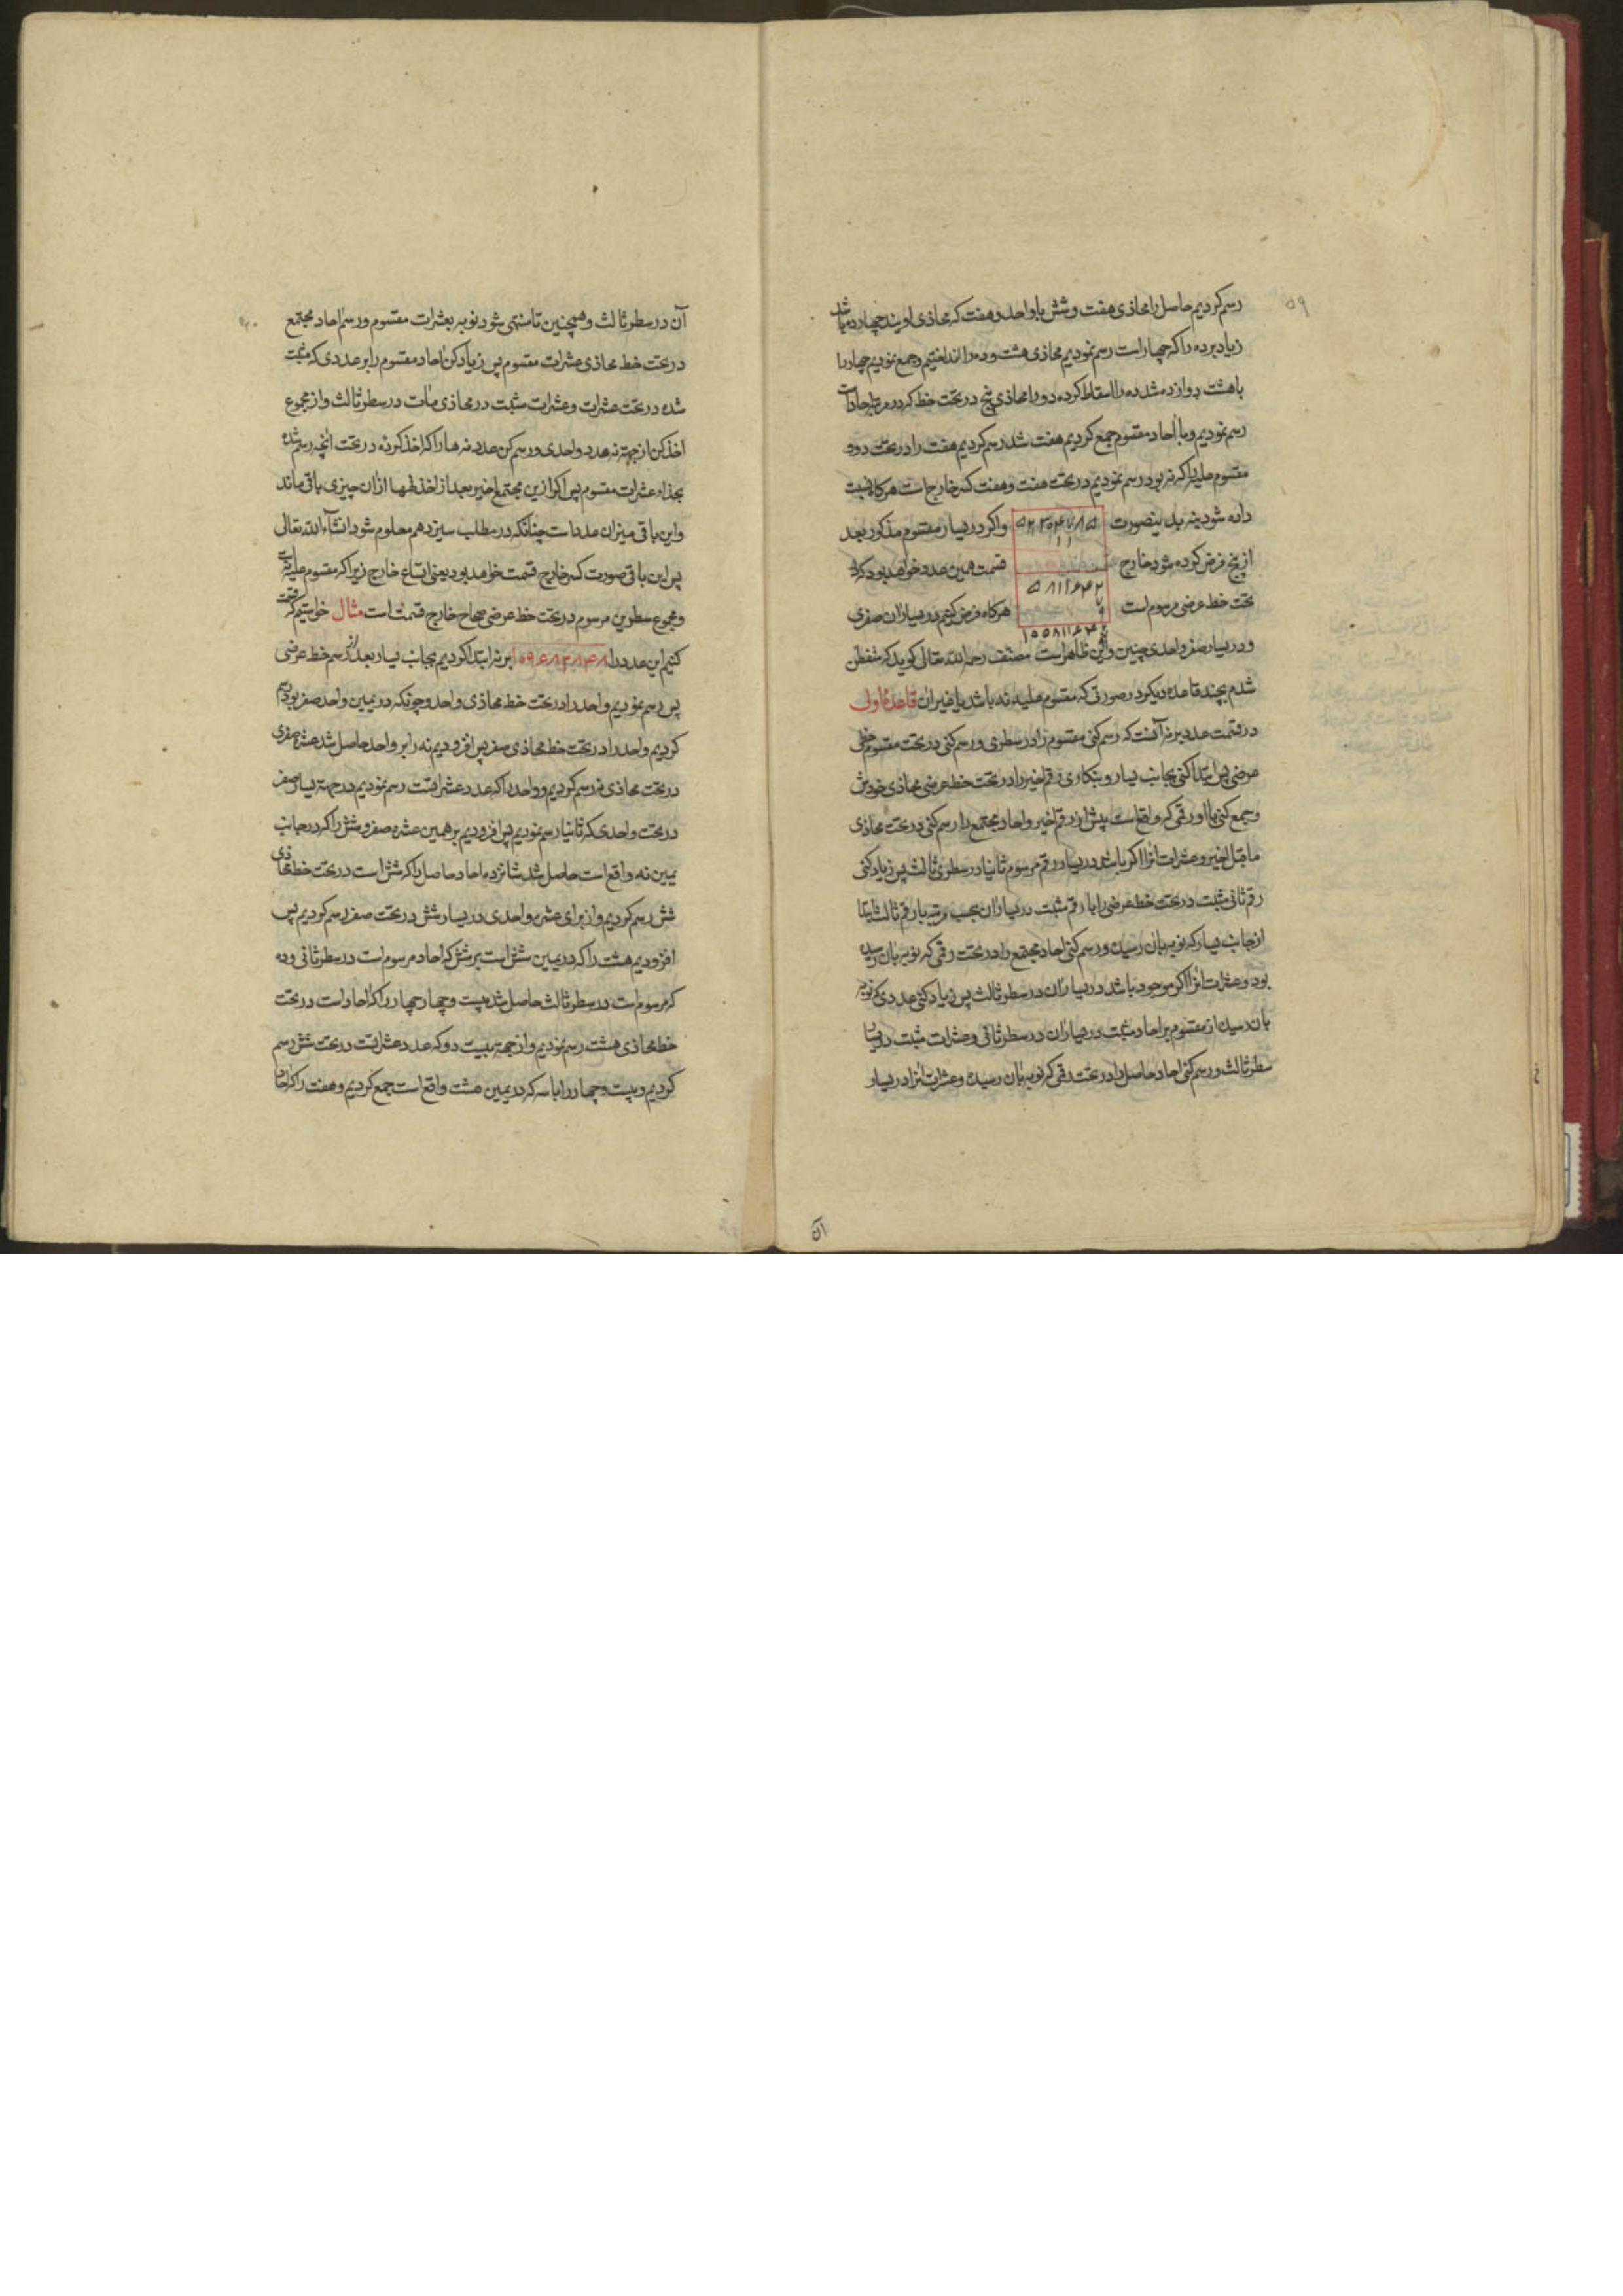 ۵۹
رسم کردیم حاصل را محاذی هفت و شش با واحد و هفت که محاذی اویند چهارده باشد
زیاد بر ده را که چهار است رسم نمودیم محاذی هشت و ده را انداختیم و جمع نمودیم چهار را
با هشت دوازده شد ده را اسقاط کرده دو را محاذی پنج در تحت خط که در مرتبه احاد است
رسم نمودیم و با احاد مقسوم جمع کردیم هفت شد رسم کردیم هفت را در تحت دو و
مقسوم علیه را که نه بود رسم نمودیم در تحت هفت و هفت کسر خارج است هرگاه نسبت
داده شود بنه بدینصورت ۵۲۳۰۴۷۸۵ و اگر در یسار مقسوم مذکور بعد
۱۱
از پنج فرض کرده شود خارج قسمت همین عدد خواهد بود که در
۵۸۱۱۶۴۲
۷
۹
تحت خط عرضی مرسوم است هرگاه فرض کنیم در یسار آن صفری
و در یسار صفر واحدی چنین ۱۰۵۸۱۱۶۴۲ و این ظاهر است مصنف رحمه الله تعالی گوید که متفطن
شدم بچند قاعده دیگر در صورتی که مقسوم علیه نه باشد یا غیر آن قاعدهٔ اولی
در قسمت عدد بر نه آنست که رسم کنی مقسوم را در سطری و رسم کنی در تحت مقسوم خطی
عرضی پس ابتدا کنی بجانب یسار و بنگاری رقم اخیر را در تحت خط عرضی محاذی خودش
و جمع کنی با او رقمی که واقع است پیش از رقم اخیر و احاد مجتمع را رسم کنی در تحت محاذی
ماقبل اخیر و عشرات آنرا اگر باشد در یسار رقم مرسوم ثانیا در سطری ثالث پس زیاد کنی
رقم ثانی مثبت در تحت خط عرضی را با رقم مثبت در یسار آن بحسب مرتبه با رقم ثالث ابتدا
از جانب یسار که نوبه بان رسیده و رسم کنی احاد مجتمع را در تحت رقمی که نوبه بان رسیده
بود و عشرات آنرا اگر موجود باشد در یسار آن در سطر ثالث پس زیاد کنی عددی که نوبه
بان رسیده از مقسوم بر احاد مثبت در یسار آن در سطر ثانی و عشرات مثبت در یسار
سطر ثالث و رسم کنی احاد حاصل را در تحت رقمی که نوبه بان رسیده و عشرات آنرا در یسار
آن
۶۰
آن در سطر ثالث و همچنین تا منتهی شود نوبه بعشرات مقسوم و رسم احاد مجتمع
در تحت خط محاذی عشرات مقسوم پس زیاد کن احاد مقسوم را بر عددی که مثبت
شده در تحت عشرات و عشرات مثبت در محاذی مآت در سطر ثالث و از مجموع
اخذ کن از جهة نه عدد واحدی و رسم کن عدد نه ها را که اخذ کرده در تحت آنچه رسم شده
بحذاء عشرات مقسوم پس اگر ازین مجتمع اخیر بعد از اخذ نه‌ها از آن چیزی باقی ماند
و این باقی میزان عدد است چنانکه در مطلب سیزدهم معلوم شود انشآء الله تعالی
پس این باقی صورت کسر خارج قسمت خواهد بود یعنی اتساع خارج زیرا که مقسوم علیه نه است
و مجموع سطرین مرسوم در تحت خط عرضی صحاح خارج قسمت است مثال خواستیم که قسمت
کنیم این عدد را ۱۰۹۶۸۳۸۴۸ بر نه ابتدا کردیم بجانب یسار بعد از رسم خط عرضی
پس رسم نمودیم واحد را در تحت خط محاذی واحد و چونکه در یمین واحد صفر بود رسم
کردیم واحد را در تحت خط محاذی صفر پس افزودیم نه را بر واحد حاصل شد عشره صفری
در تحت محاذی نه رسم کردیم و واحد را که عدد عشرا نست رسم نمودیم در جهة یسار صفر
در تحت واحدی که ثانیا رسم نمودیم پس افزودیم بر همین عشره صفر و شش را که در جانب
یمین نه واقع است حاصل شد شانزده احاد حاصل را که شش است در تحت خط محاذی
شش رسم کردیم و از برای عشره واحدی در یسار شش در تحت صفر رسم کردیم پس
افزودیم هشت را که در یمین شش است بر شش که احاد مرسوم است در سطر ثانی و ده
که مرسوم است در سطر ثالث حاصل شد بیست و چهار چهار را که احاد است در تحت
خط محاذی هشت رسم نمودیم و از جهة بیست دو که عدد عشرا تست در تحت شش رسم
کردیم و بیست و چهار را با سه که در یمین هشت واقع است جمع کردیم و هفت را که احاد